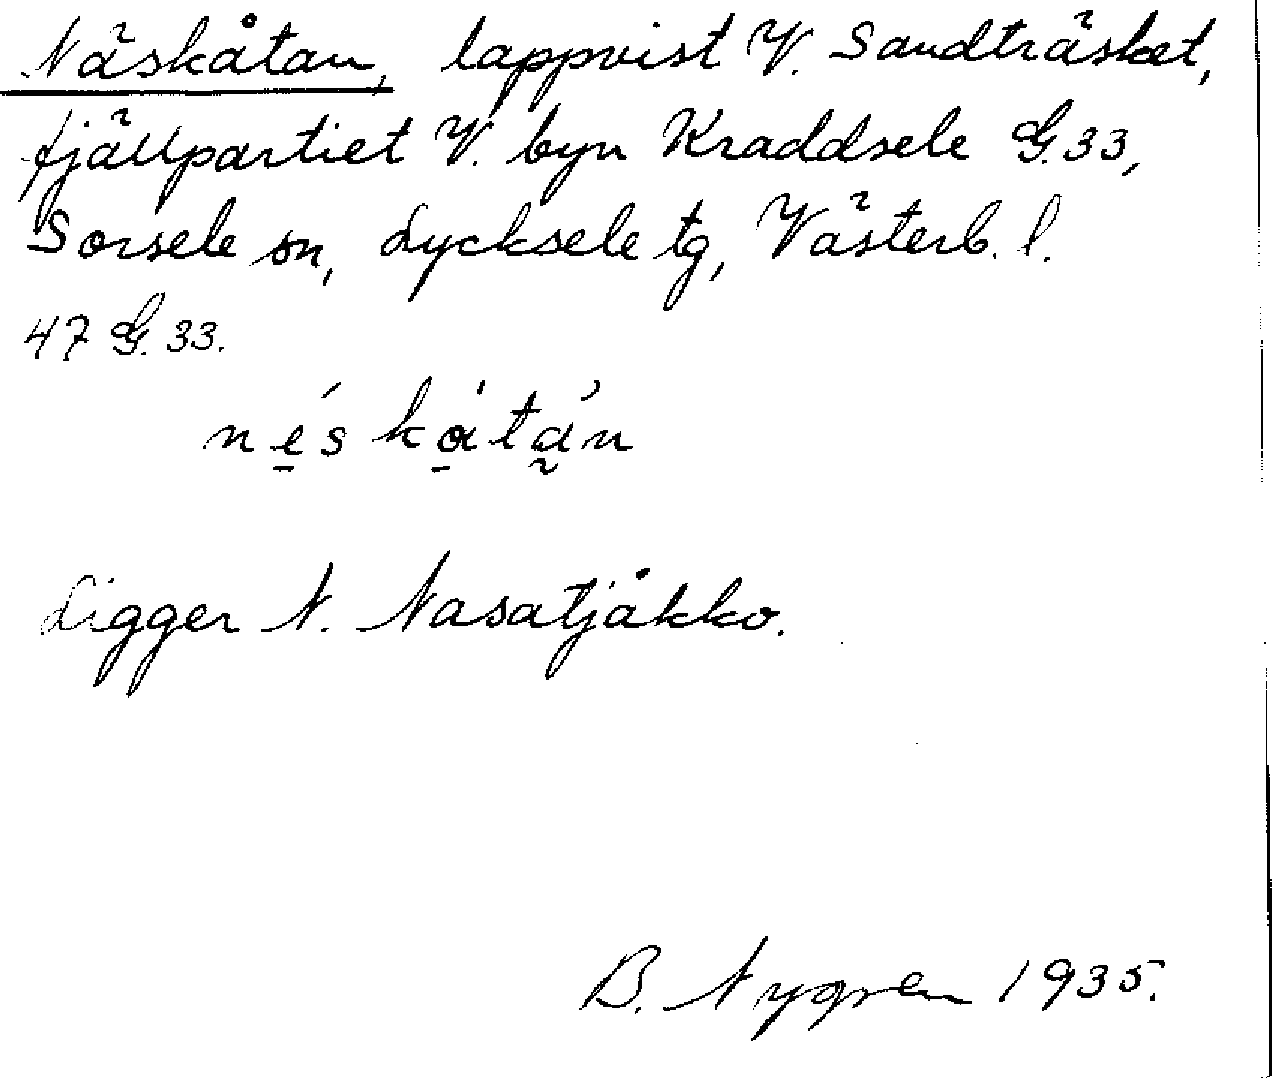 Näskåtan, lappvist V. Sandträsket,
fjällpartiet V. byn Kraddsele G. 33,
Sorsele sn, Lycksele tg, Västerb. l.
47 G. 33.
Ligger N. Nasatjåkko.
B. Nygren 1935.